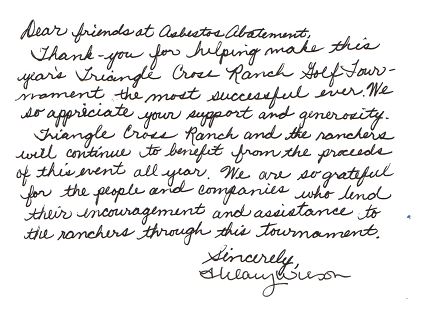 Dear friends at Asbestos Abatement,
Thank-you for helping make this
year's Triangle Cross Ranch Golf Tour-
nament the most successful ever. We
so appreciate your support and generosity.
Triangle Cross Ranch and the ranchers
will continue to benefit from the proceeds
of this event all year. We are so grateful
for the people and companies who lend
their encouragement and assistance to
the ranchers through this tournament.
Sincerely,